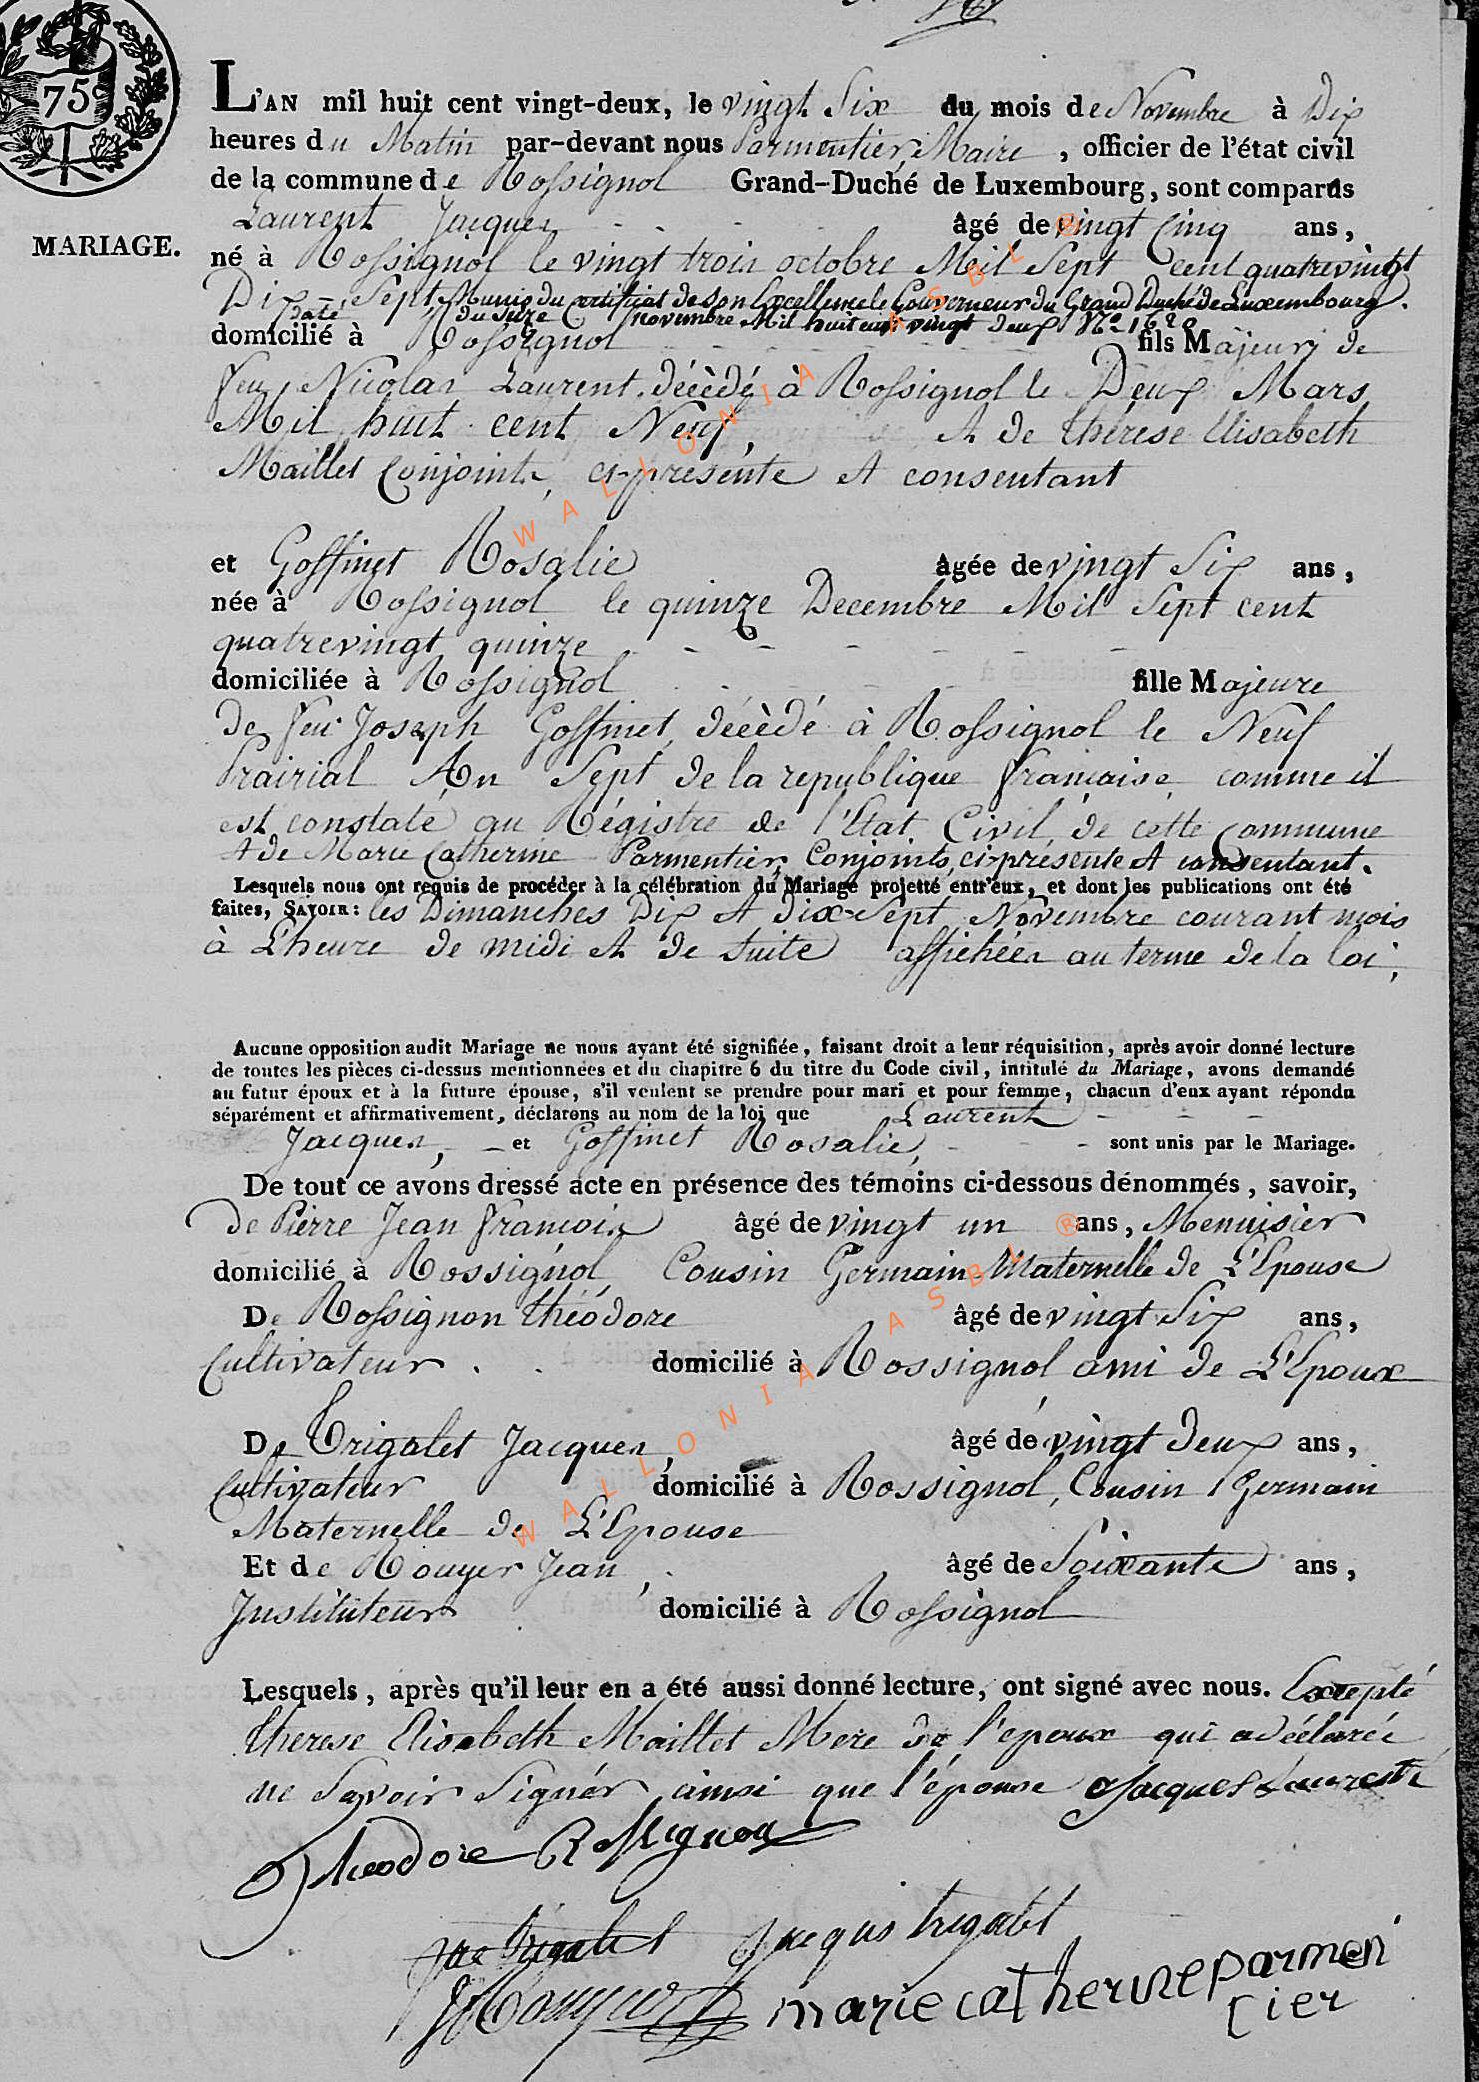 75
MARIAGE.
L'AN mil huit cent vingt-deux, le vingt Six du mois de Novembre à Dix
heures du Matin par-devant nous Parmentier, Maire , officier de l'état civil
de la commune de Rossignol Grand-Duché de Luxembourg, sont comparus
Laurent Jacques âgé de vingt Cinq ans,
né à Rossignol le vingt trois octobre Mil Sept cent quatrevingt
Dix Sept Munis du certificat de Son Excellence le Gouverneur du Grand Duché de Luxembourg.
Daté du Seize novembre Mil huit cent vingt Deux
domicilié à Rossignol fils Majeur de
feu Nicolas Laurent, décèdé à Rossignol le Deux Mars
Mil huit cent Neuf, et de thérèse Elisabeth
Maillet Conjoints, ci-présente et consentant
et Goffinet Rosalie âgée de vingt Six ans,
née à Rossignol le quinze Decembre Mil Sept cent
quatrevingt quinze
domiciliée à Rossignol fille Majeure
de feu Joseph Goffinet, décèdé à Rossignol le Neuf
Prairial An Sept de la republique française, comme il
est constaté au Régistre de l'Etat Civil de cette Commune
et de Marie Catherine Parmentier, Conjoints, ci-présente et consentant.
Lesquels nous ont requis de procéder à la célébration du Mariage projetté entr'eux, et dont les publications ont été
faites, SAVOIR: les Dimanches Dix et dix-Sept Novembre courant mois
à L'heure de midi et de Suite affichées au terme de la loi,
Aucune opposition audit Mariage ne nous ayant été signifiée, faisant droit a leur réquisition, après avoir donné lecture
de toutes les pièces ci-dessus mentionnées et du chapitre 6 du titre du Code civil, intitulé du Mariage, avons demandé
au futur époux et à la future épouse, s'il veulent se prendre pour mari et pour femme, chacun d'eux ayant répondu
séparément et affirmativement, déclarons au nom de la loi que Laurent
Jacques, et Goffinet Rosalie, sont unis par le Mariage.
De tout ce avons dressé acte en présence des témoins ci-dessous dénommés, savoir,
de Pierre Jean françois âgé de vingt un ans, Menuisier
domicilié à Rossignol, Cousin Germain Maternelle de L'Epouse
De Rossignon théodore âgé de vingt Six ans,
Cultivateur domicilié à Rossignol ami de L'Epoux
De Trigalet Jacques, âgé de vingt deux ans,
Cultivateur domicilié à Rossignol, Cousin Germain
Maternelle de L'Epouse
Et de Rouyer Jean, âgé de Soixante ans,
Instituteur domicilié à Rossignol
Lesquels, après qu'il leur en a été aussi donné lecture, ont signé avec nous. Excepté
therese Elisabeth Maillet Mere de l'epoux qui a déclaré
ne Savoir Signér ainsi que l'épouse Jacques Laurent
theodore Rossignon
Jacques trigalet
marie catherine parmen
tier
WALLONIA ASBL ®
WALLONIA ASBL ®